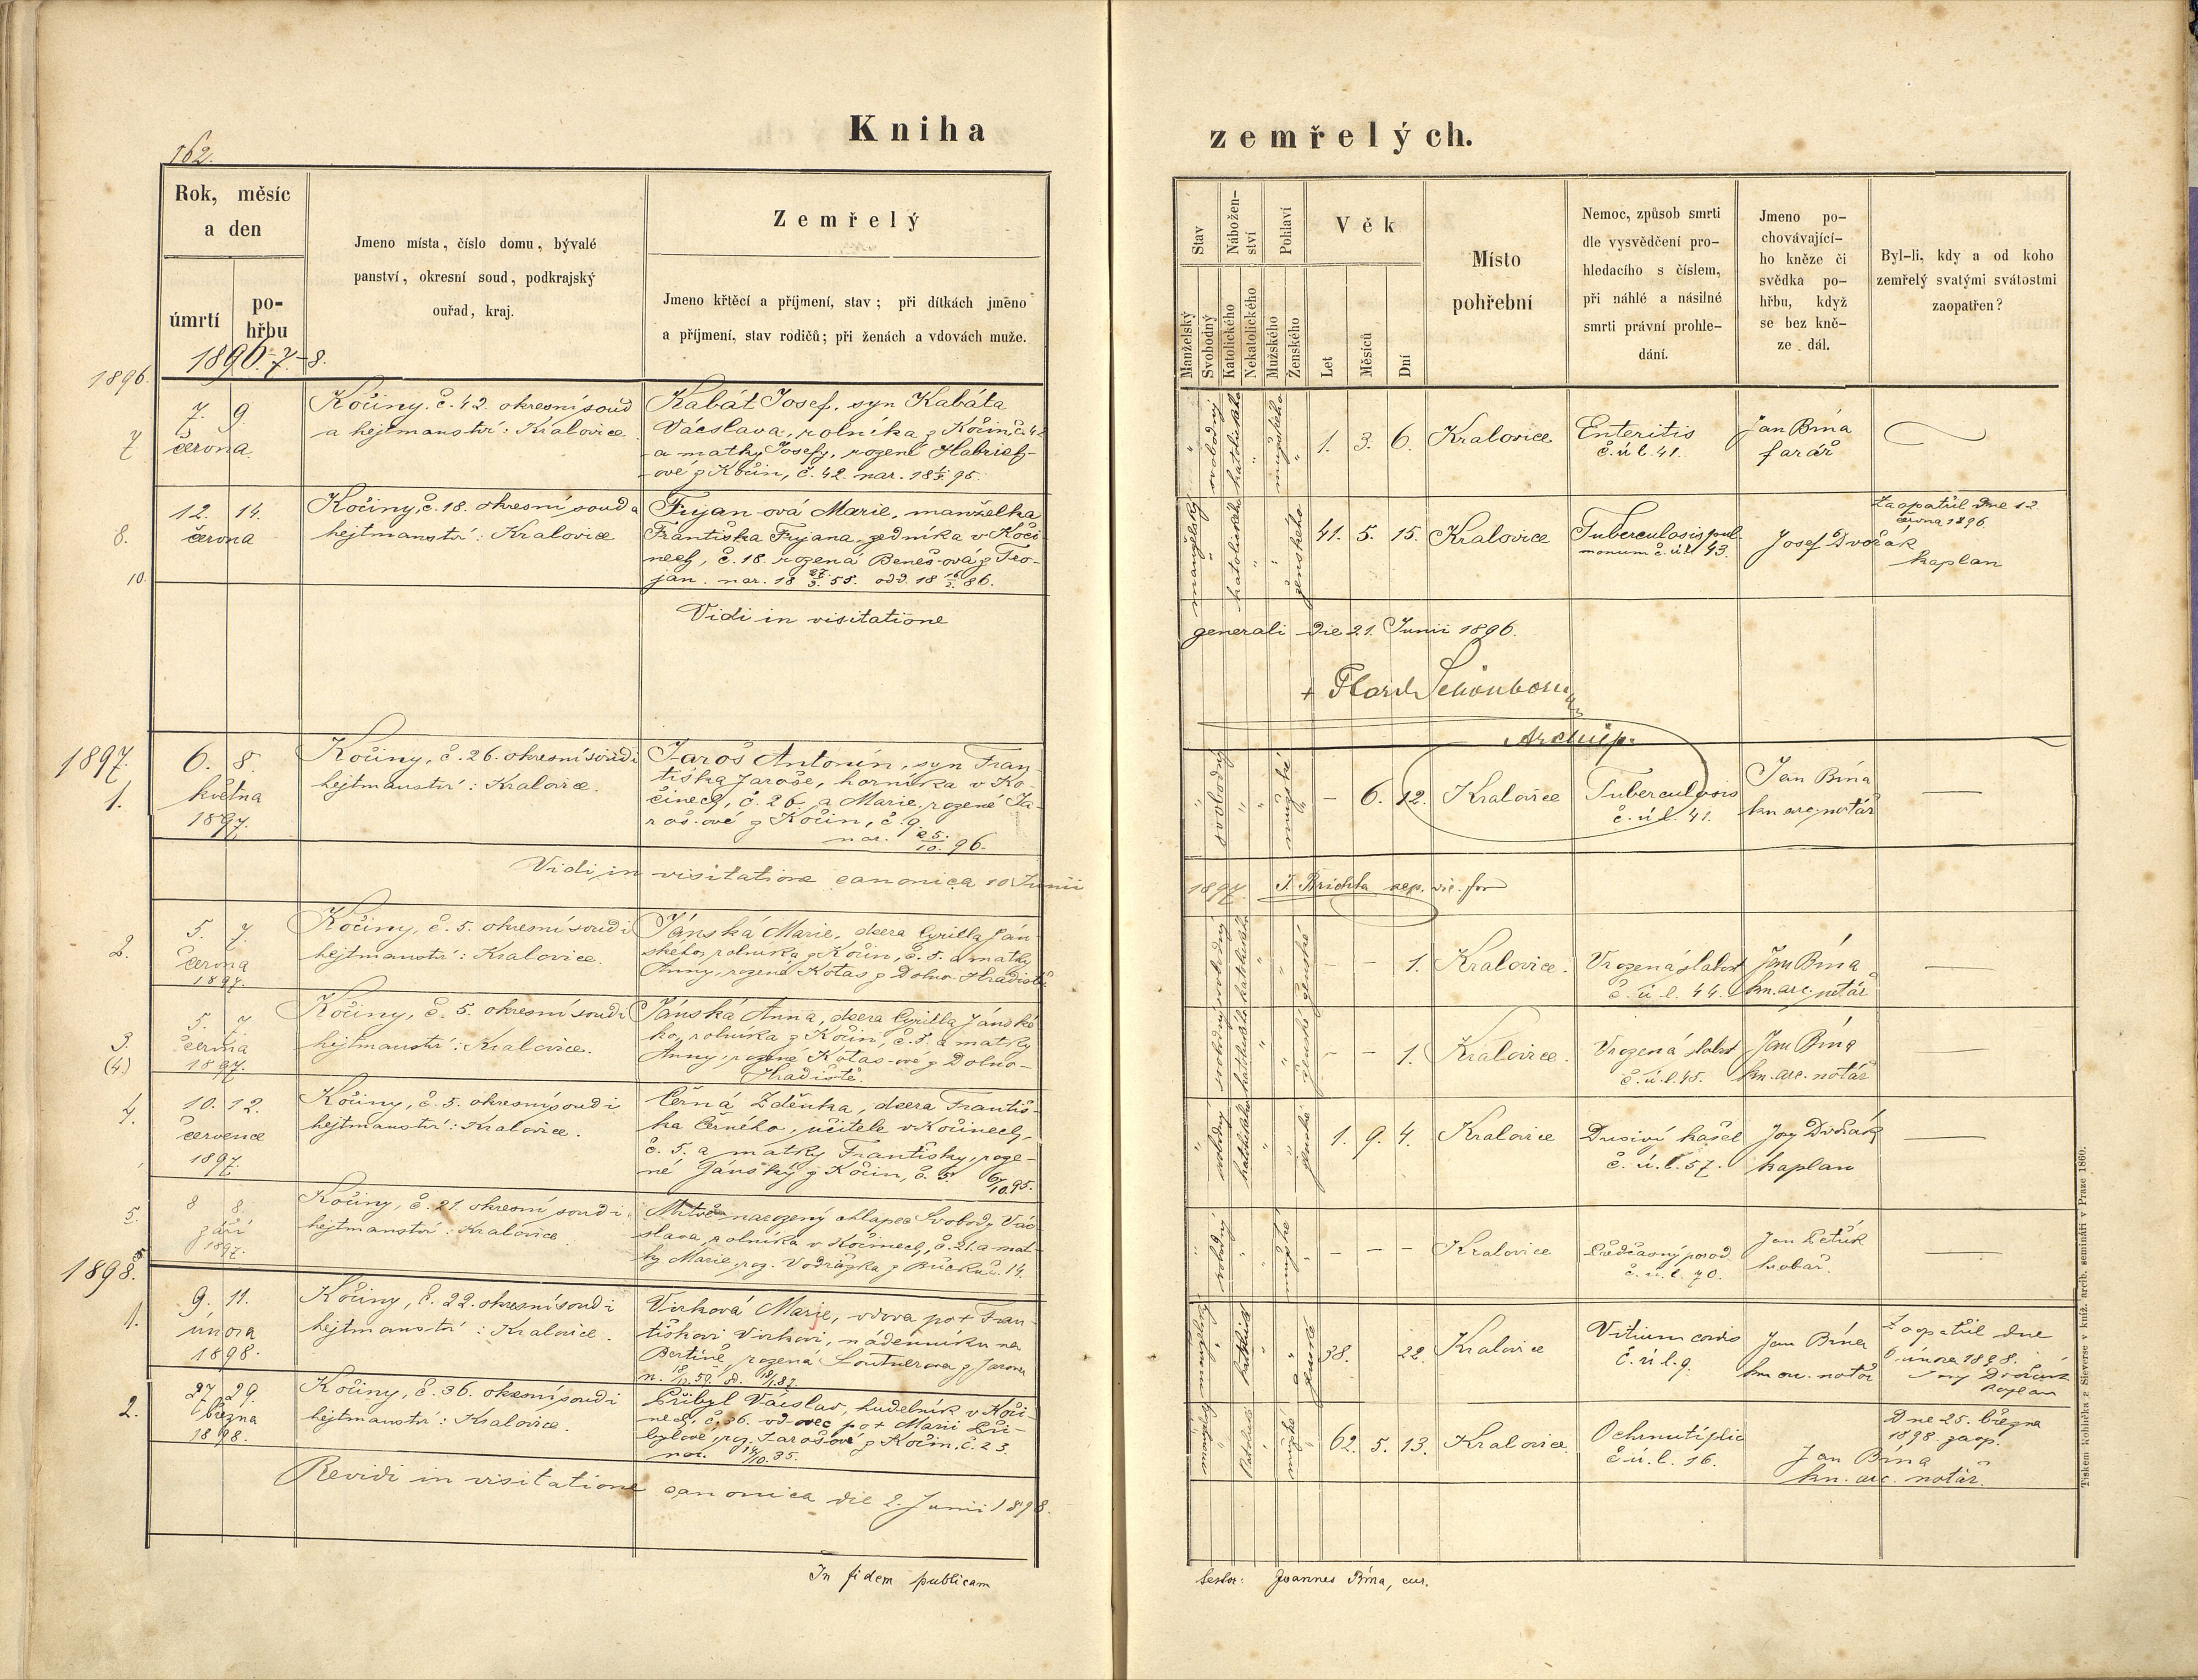 Kniha
zemřelých.
162.
Rok, měsíc
a den
úmrtí
po-
hřbu
1896.-7.-8.
Jmeno místa, číslo domu, bývalé
panství, okresní soud, podkrajský
ouřad, kraj.
Zemřelý
Jmeno křtěcí a příjmení, stav; při dítkách jmeno
a příjmení, stav rodičů; při ženách a vdovách muže.
Stav
Manželský
Svobodný
Nábožen-
ství
Katolického
Nekatolického
Pohlaví
Mužského
Ženského
Věk
Let
Měsíců
Dní
Místo
pohřební
Nemoc, způsob smrti
dle vysvědčení pro-
hledacího s číslem,
při náhlé a násilné
smrti právní prohle-
dání.
Jmeno po-
chovávající-
ho kněze či
svědka po-
hřbu, když
se bez kně-
ze dál.
Byl-li, kdy a od koho
zemřelý svatými svátostmi
zaopatřen?
1896.
7
7. 9.
června.
Kočiny, č. 42. okresní soud
a hejtmanství: Kralovice.
Kabát Josef, syn Kabáta
Vácslava, rolníka z Kočin, č. 42
a matky Josefy, rozené Habrief-
ové z Kočin, č. 42. nar.
svobodný
katolického
mužského
1. 3. 6.
Kralovice
Enteritis
č. ú l. 41.
Jan Brna
farář
8.
12. 14.
června
Kočiny, č. 18. okresní soud a
hejtmanství: Kralovice
Fryjan-ová Marie, manželka
Františka Fryjana, zedníka v Koči-
nech, č. 18. rozená Beneš-ová z Tro-
jan. nar. 18 27/3. 55. odd. 18 16/2. 86.
manželský
katolického
ženského
41. 5. 15.
Kralovice
Tuberculosis pul-
monum č. ú l. 43.
Josef Dvořák
kaplan
Zaopatřil dne 12
června 1896
10.
Vidi in visitatione
generali die 21. Junii 1896.
+ Schönborn
Archiep.
1897.
1.
6. 8.
května
1897.
Kočiny, č. 26. okresní soud i
hejtmanství: Kralovice.
Jaroš Antonín, syn Fran-
tiška Jaroše, horníka v Ko-
činech, č. 26. a Marie, rozené Ja-
roš-ové z Kočin, č. 9.
nar. 25./10. 96.
svobodný
mužské
– 6. 12.
Kralovice
Tuberculosis
č. ú l. 41.
Jan Brna
kn. arc. notář
Vidi in visitatione canonica 10 Junii
1897. J. Brichta
2.
5. 7.
června
1897.
Kočiny, č. 5. okresní soud i
hejtmanství: Kralovice.
Jánská Marie, dcera Cyrilla Ján-
ského, rolníka z Kočin, č. 5. a matky
Anny, rozené Kotas z Dolno-Hradiště
svobodný
katolického
ženské
– – 1.
Kralovice.
Vrozená slabost
č. ú l. 44.
Jan Brna
kn. arc. notář
3.
(4.)
5. 7.
června
1897.
Kočiny, č. 5. okresní soud i
hejtmanství: Kralovice.
Jánská Anna, dcera Cyrilla Jánské-
ho, rolníka z Kočin, č. 5. a matky
Anny, rozené Kotas-ové z Dolno-
Hradiště.
svobodný
katolického
ženské
– – 1.
Kralovice.
Vrozená slabost
č. ú. l. 45.
Jan Brna
kn. arc. notář
4.
10. 12.
července
1897.
Kočiny, č. 5. okresní soud i
hejtmanství: Kralovice.
Černá Zděnka, dcera Františ-
ka Černého, učitele v Kočinech,
č. 5. a matky Františky, roze-
né Jánský z Kočin, č. 5. 6/10. 95.
svobodný
katolického
ženské
1. 9. 4.
Kralovice
Dusivý kašel
č. ú. l. 57.
Jos. Dvořák
kaplan
5.
8 8.
září
1897.
Kočiny, č. 21. okresní soud i
hejtmanství: Kralovice
Mrtvě narozený chlapec Svobody Vác-
slava, rolníka v Kočinech, č. 21. a mat-
ky Marie, roz. Vodrážka z Bučku č. 14.
svobodný
mužské
– – –
Kralovice
Předčasný porod
č. ú. l. 70.
Jan
hrobař.
1898.
1.
9. 11.
února
1898.
Kočiny, č. 22. okresní soud i
hejtmanství: Kralovice.
Virková Marie, vdova po + Fran-
tiškovi Virkovi, nádenníku na
Bertíně, rozená
ženské
38. 22.
Kralovice
Vitium cordis
č. ú l. 9.
Jan Brna
kn. arc. notář
Zaopatřil dne
6 února 1898.
Jos. Dvořák
kaplan
2.
27 29.
března
1898.
Kočiny, č. 36. okresní soud i
hejtmanství: Kralovice.
Přibyl Václav, hudebník v Koči-
nech, č. 36. vdovec po + Marii Při-
bylové, roz. Jarošové z Kočin, č. 23.
nar. 14/10. 35.
mužské
62. 5. 13.
Kralovice.
Ochrnutí plic
č. ú. l. 16.
Jan Brna
kn. arc. notář.
Dne 25. března
1898. zaop.
Revidi in visitatione canonica die 2. Junii 1898.
In fidem publicam
Joannes Brna, cur.
Tiskem Rohlíčka z Sieverse v kníž. arcib. semináři v Praze 1860.